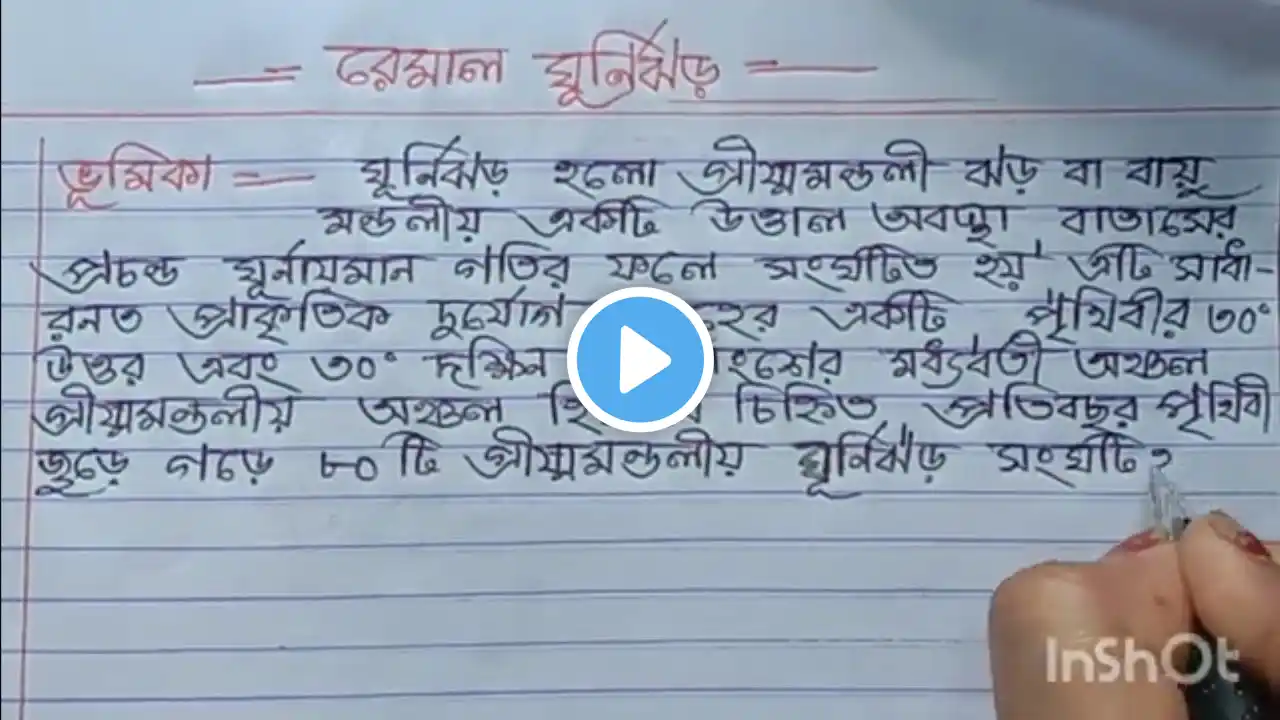 রেমাল ঘুর্নিঝড়
ভূমিকা = ঘূর্নিঝড় হলো গ্রীষ্মমন্ডলী ঝড় বা বায়ু
মন্ডলীয় একটি উত্তাল অবস্থা বাতাসের
প্রচন্ড ঘূর্নায়মান গতির ফলে সংঘটিত হয় এটি সাধা-
রনত প্রাকৃতিক দুর্যোগ একটি পৃথিবীর ৩০°
উত্তর এবং ৩০° দক্ষিন মধ্যবর্তী অঞ্চল
গ্রীষ্মমন্ডলীয় অঞ্চল চিহ্নিত প্রতিবছর পৃথিবী
জুড়ে গড়ে ৮০ টি গ্রীষ্মমন্ডলীয় ঘূর্নিঝড় সংঘটি
InShOt